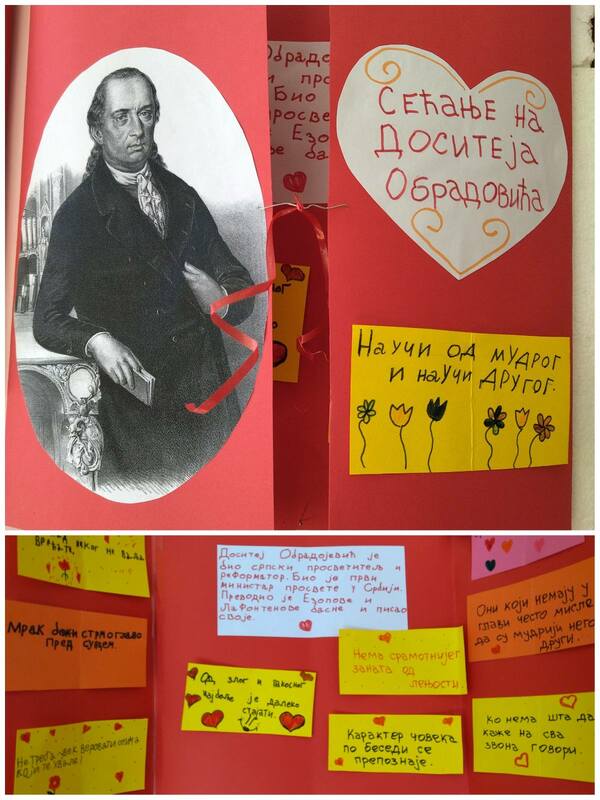 Обрадо
и про
Био
просве
Езо
ба
СЕЋАЊЕ на
ДОСИТЕЈА
ОБРАДОВИЋА
Научи од мудрог
и научи другог.
вређати, неког не ваља
Мрак бежи стрмоглаво
пред сунцем.
Не треба увек веровати онима
који те хвале!
Доситеј Обрадојевић је
био српски просветитељ и
реформатор. Био је први
министар просвете у Србији.
Преводио је Езопове и
Лафонтенове басне и писао
своје.
Од злог и пакосног
најбоље је далеко
стајати.
Нема срамотнијег
заната од
лењости.
Карактер човека
по беседи се
препознаје.
Они који немају у
глави често мисле
да су мудрији него
други.
Ко нема шта да
каже на сва
звона говори.